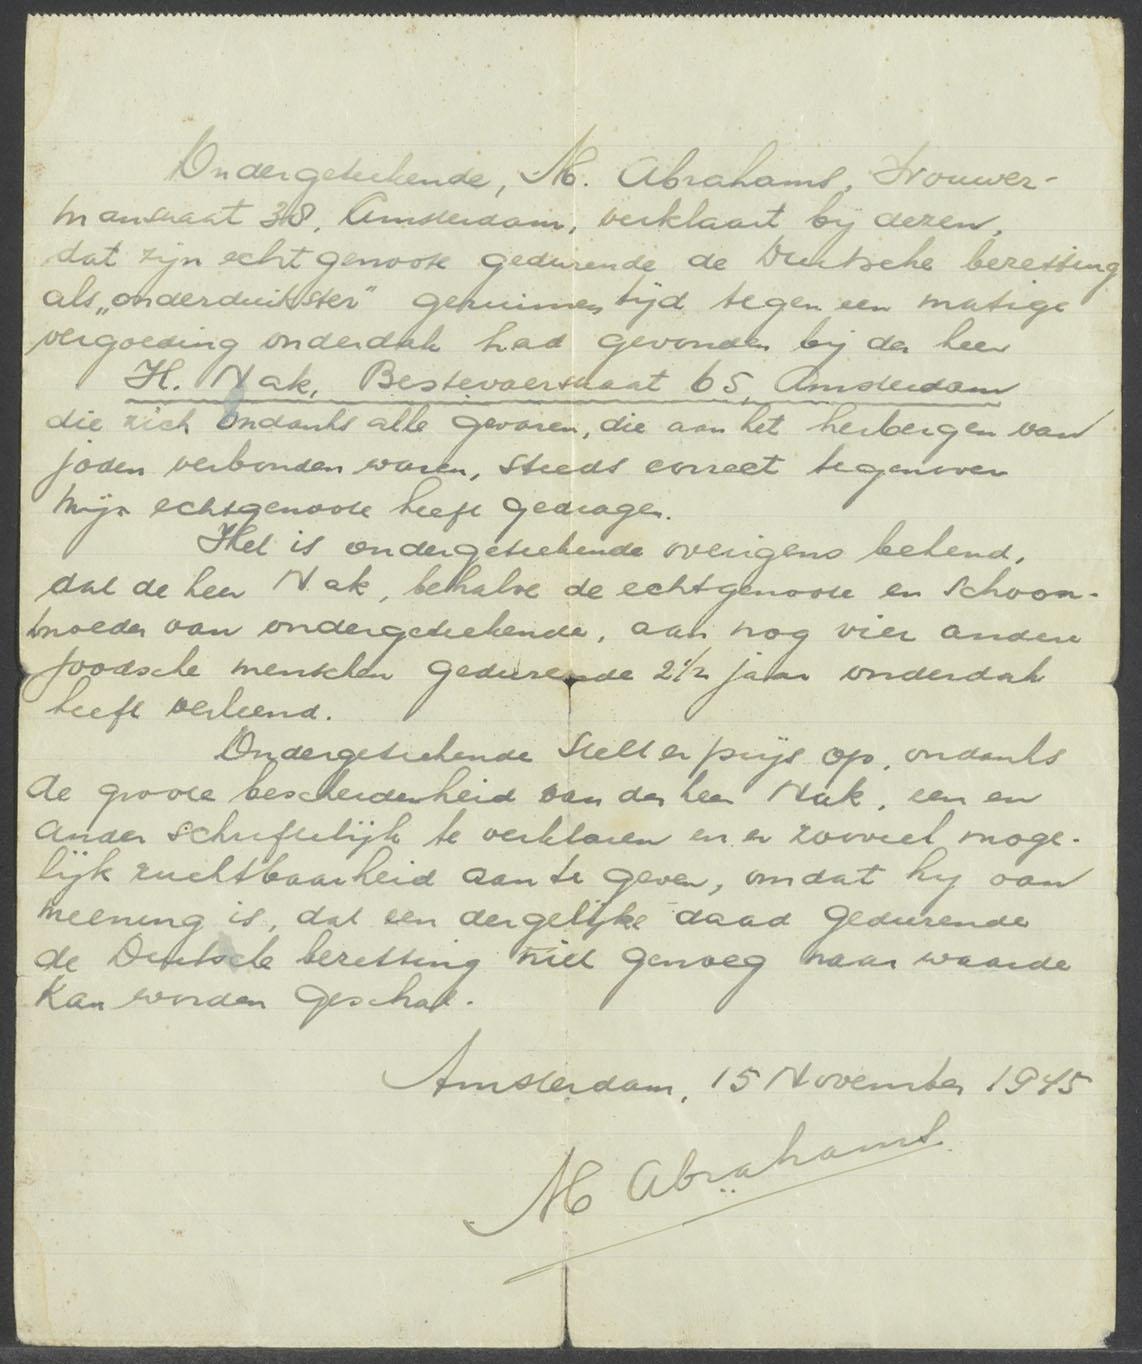 Ondergeteekende, M. Abrahams, Wouwer-
manstraat 38, Amsterdam, verklaart bij dezen,
dat zijn echtgenoote gedurende de Duitsche bezetting
als „onderduikster" geruimen tijd tegen een matige
vergoeding onderdak had gevonden bij den heer
H. Nak, Bestevaerstraat 65, Amsterdam
die zich ondanks alle gevaren, die aan het herbergen van
joden verbonden waren, steeds correct tegenover
mijn echtgenoote heeft gedragen.
Het is ondergeteekende overigens bekend,
dat de heer Nak, behalve de echtgenoote en schoon-
moeder van ondergeteekende, aan nog vier andere
Joodsche menschen gedurende 2 1/2 jaar onderdak
heeft verleend.
Ondergeteekende stelt er prijs op, ondanks
de groote bescheidenheid van den heer Nak, een en
ander schriftelijk te verklaren en er zooveel moge-
lijk ruchtbaarheid aan te geven, omdat hij van
meening is, dat een dergelijke daad gedurende
de Duitsche bezetting niet genoeg naar waarde
kan worden geschat.
Amsterdam, 15 November 1945
M Abrahams